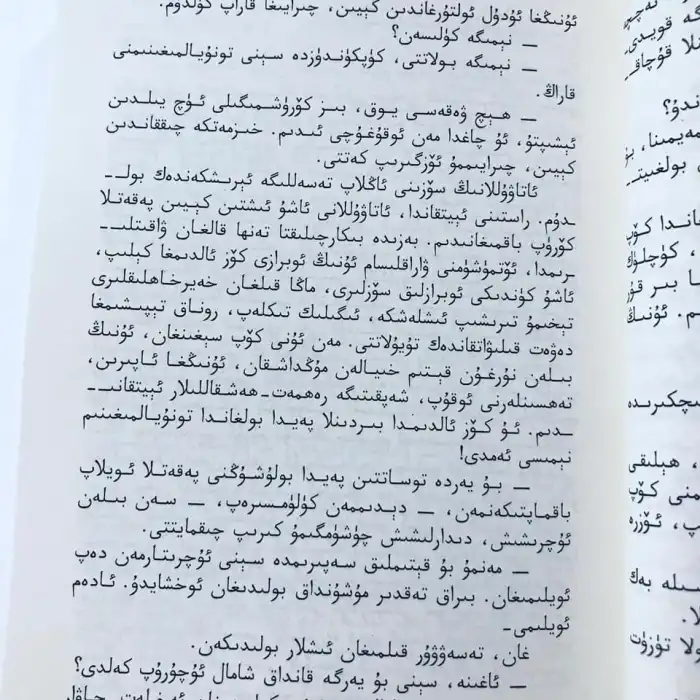 ئۇنىڭغا ئۇدۇل ئولتۇرغاندىن كېيىن، چىرايىغا قاراپ كۈلدۈم.
— نېمىگە كۈلىسەن؟
— نېمىگە بولاتتى، كۈپكۈندۈزدە سېنى تونۇيالمىغىنىمنى
قاراڭ.
— ھېچ ۋەقەسى يوق، بىز كۆرۈشمىگىلى ئۈچ يىلدىن
ئېشىپتۇ، ئۇ چاغدا مەن ئوقۇغۇچى ئىدىم. خىزمەتكە چىققاندىن
كېيىن، چىرايىممۇ ئۆزگىرىپ كەتتى.
ئاتاۋۇللانىڭ سۆزىنى ئاڭلاپ تەسەللىگە ئېرىشكەندەك بول—
دۇم. راستىنى ئېيتقاندا، ئاتاۋۇللانى ئاشۇ ئىشتىن كېيىن پەقەتلا
كۆرۈپ باقمىغانىدىم. بەزىدە بىكارچىلىقتا تەنھا قالغان ۋاقىتلى—
رىمدا، ئۆتمۈشۈمنى ۋاراقلىسام ئۇنىڭ ئوبرازى كۆز ئالدىمغا كېلىپ،
ئاشۇ كۈندىكى ئوبرازلىق سۆزلىرى، ماڭا قىلغان خەيرخاھلىقلىرى
تېخىمۇ تىرىشىپ ئىشلەشكە، ئىگىلىك تىكلەپ، روناق تېپىشىمغا
دەۋەت قىلىۋاتقاندەك تۇيۇلاتتى. مەن ئۇنى كۆپ سېغىنغان، ئۇنىڭ
بىلەن نۇرغۇن قېتىم خىيالەن مۇڭداشقان، ئۇنىڭغا ئاپىرىن،
تەھسىنلەرنى ئوقۇپ، شەپقىتىگە رەھمەت-ھەشقاللىلار ئېيتقانى—
دىم. ئۇ كۆز ئالدىمدا بىردىنلا پەيدا بولغاندا تونۇيالمىغىنىم
نېمىسى ئەمدى!
— بۇ يەردە توساتتىن پەيدا بولۇشۇڭنى پەقەتلا ئويلاپ
باقماپتىكەنمەن، — دېدىممەن كۈلۈمسىرەپ، — سەن بىلەن
ئۇچرىشىش، دىدارلىشىش چۈشۈمگىمۇ كىرىپ چىقمايتتى.
— مەنمۇ بۇ قېتىملىق سەپىرىمدە سېنى ئۇچرىتارمەن دەپ
ئويلىمىغان. بىراق تەقدىر مۇشۇنداق بولىدىغان ئوخشايدۇ. ئادەم
ئويلىمى—
غان، تەسەۋۋۇر قىلمىغان ئىشلار بولىدىكەن.
— ئاغىنە، سېنى بۇ يەرگە قانداق شامال ئۇچۇرۇپ كەلدى؟